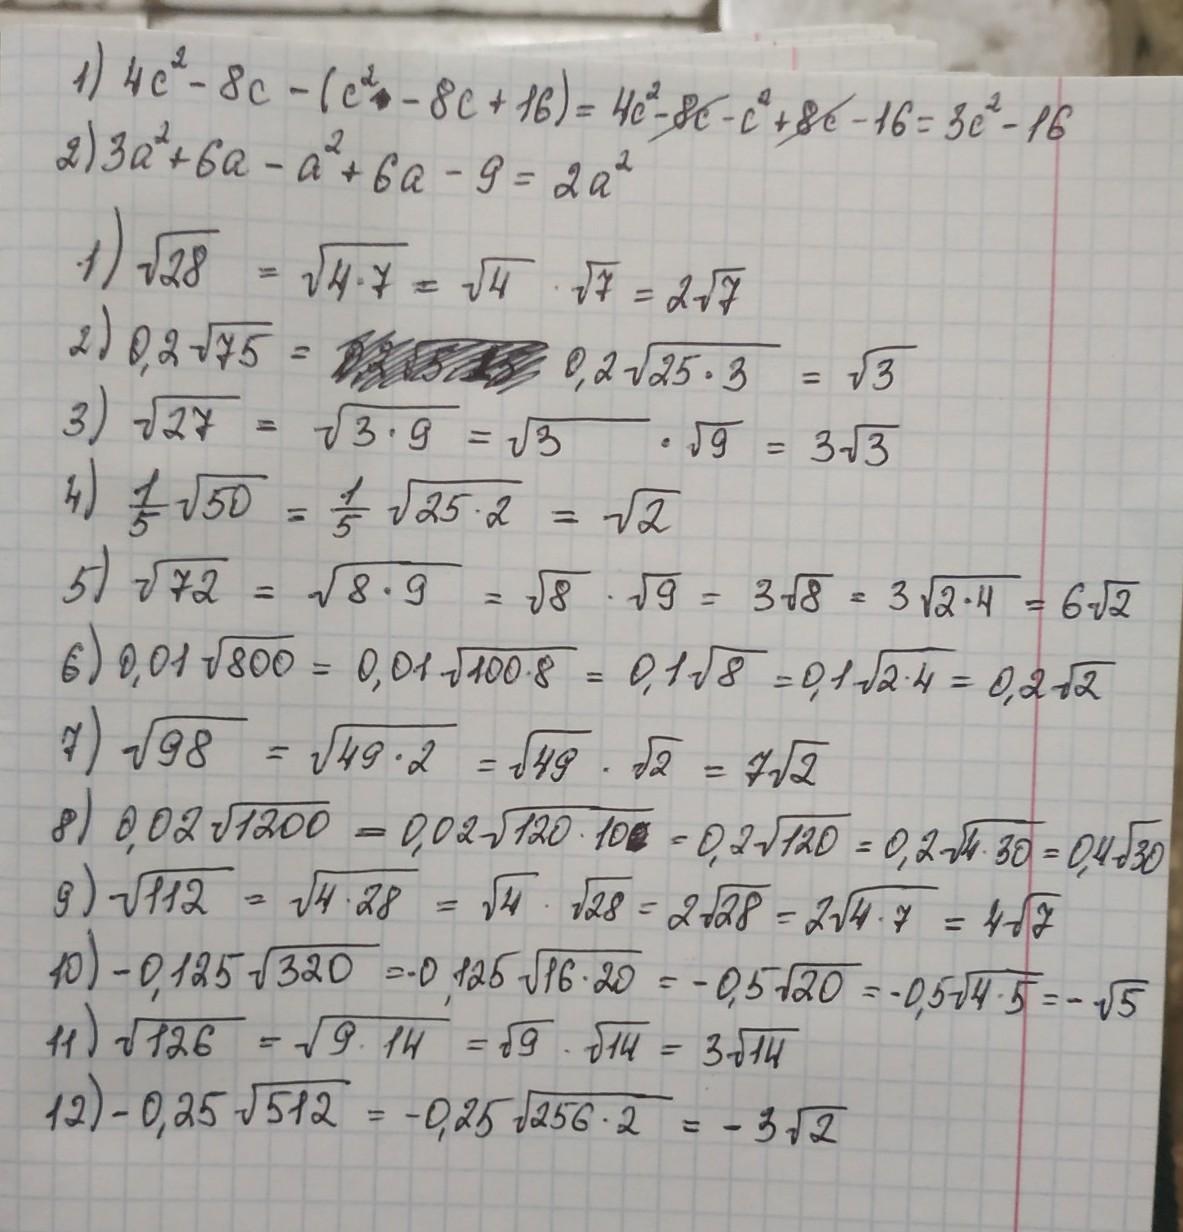 1) 4c² - 8c - (c² - 8c + 16) = 4c² - 8c - c² + 8c - 16 = 3c² - 16
2) 3a² + 6a - a² + 6a - 9 = 2a²
1) √28 = √4·7 = √4 · √7 = 2√7
2) 0,2√75 = 0,2√25·3 = √3
3) √27 = √3·9 = √3 · √9 = 3√3
4) 1/5 √50 = 1/5 √25·2 = √2
5) √72 = √8·9 = √8 · √9 = 3√8 = 3√2·4 = 6√2
6) 0,01√800 = 0,01√100·8 = 0,1√8 = 0,1√2·4 = 0,2√2
7) √98 = √49·2 = √49 · √2 = 7√2
8) 0,02√1200 = 0,02√120·10 = 0,2√120 = 0,2√4·30 = 0,4√30
9) √112 = √4·28 = √4 · √28 = 2√28 = 2√4·7 = 4√7
10) -0,125√320 = -0,125√16·20 = -0,5√20 = -0,5√4·5 = -√5
11) √126 = √9·14 = √9 · √14 = 3√14
12) -0,25√512 = -0,25√256·2 = -3√2